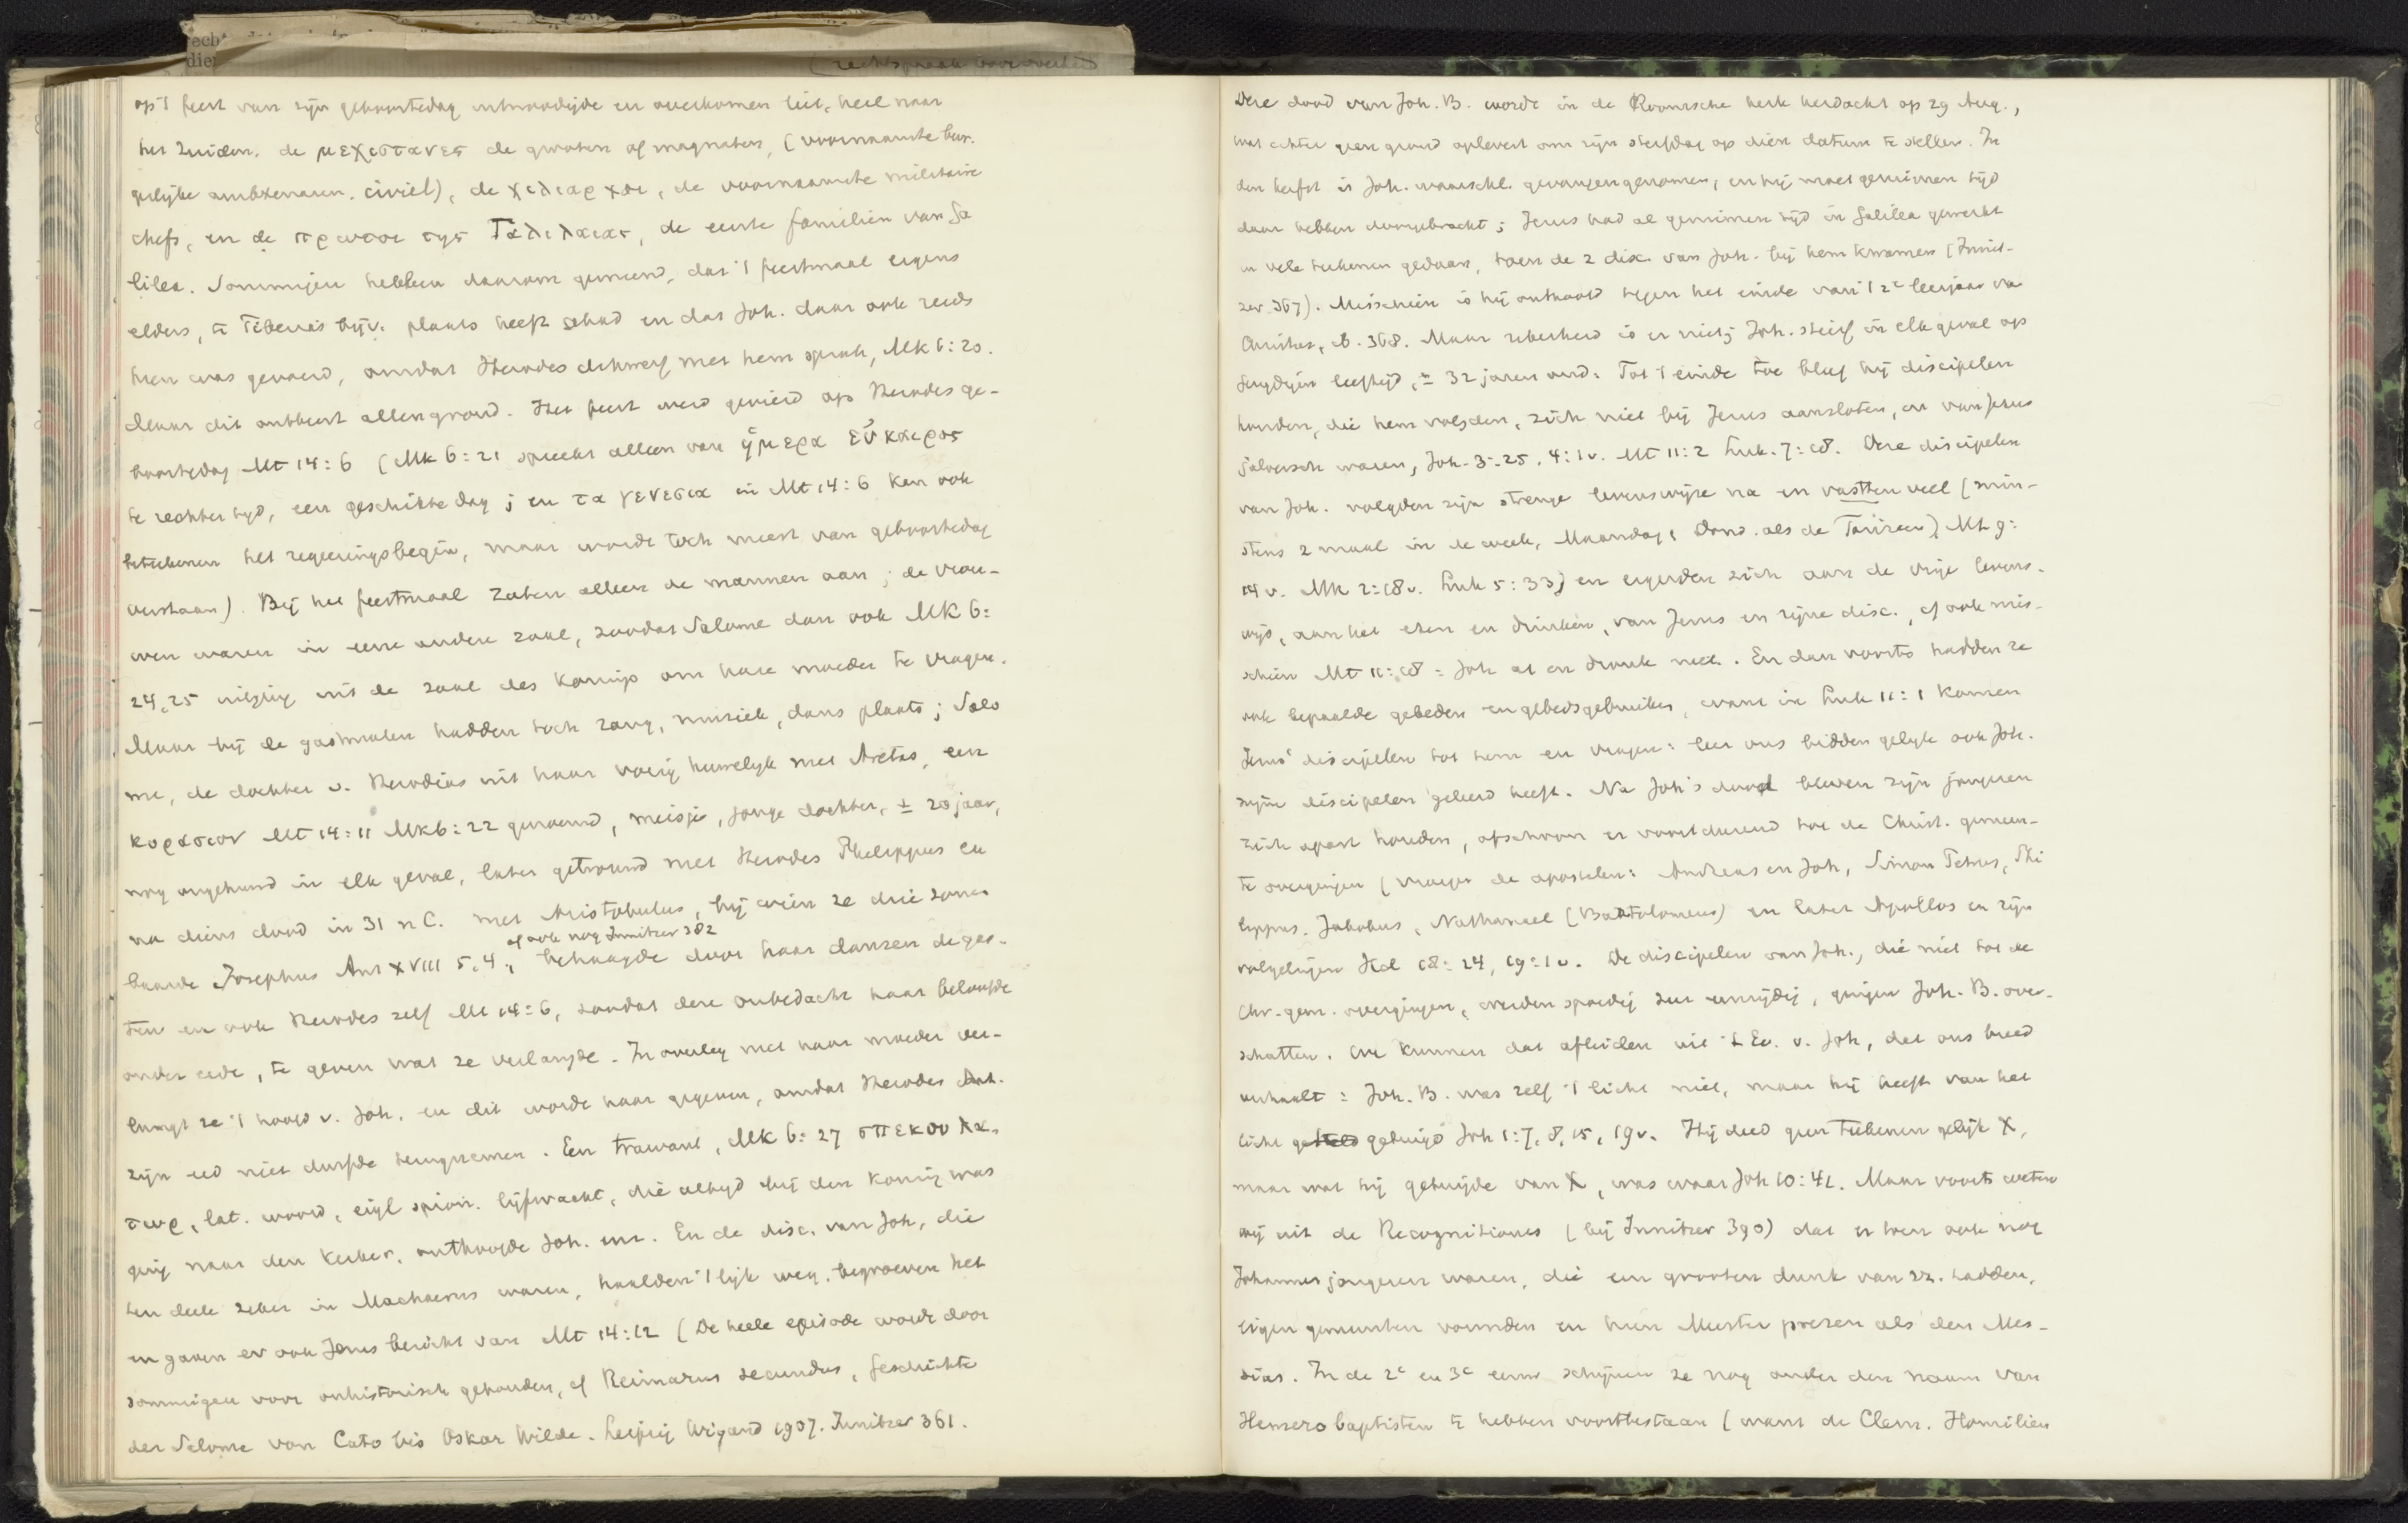 op 't feest van zijn geboortedag uitnoodigde en overkomen liet, heel naar
het Zuiden. de μεγιστανες de grooten of magnaten, (voornaamste bur-
gelijke ambtenaren. civiel), de χιλιαρχοι, de voornaamste militaire
chefs, en de πρωτοι της Γαλιλαιας, de eerste familien van Ga
lilea. Sommigen hebben daarom gemeend, dat 't feestmaal ergens
elders, te Tiberias bijv. plaats heeft gehad en dat Joh. daar ook reeds
heen was gevoerd, omdat Herodes dikwerf met hem sprak, Mk 6:20.
Maar dit ontbeert allen grond. Het feest werd gevierd op Herodes ge-
boortedag Mt 14:6 (Mk 6:21 spreekt alleen van ἡμερα εὐκαιρος
te rechter tijd, een geschikte dag; en τα γενεσια in Mt 14:6 kan ook
beteekenen het regeeringsbegin, maar wordt toch meest van geboortedag
verstaan). Bij het feestmaal zaten alleen de mannen aan; de vrou-
wen waren in eene andere zaal, zoodat Salome dan ook Mk 6:
24,25 uitging uit de zaal des konings om hare moeder te vragen.
Maar bij de gastmalen hadden toch zang, muziek, dans plaats; Salo
me, de dochter v. Herodias uit haar vorig huwelijk met Aretas, een
κορασιον Mt 14:11 Mk 6:22 genoemd, meisje, jonge dochter, ± 20 jaar,
nog ongehuwd in elk geval, later getrouwd met Herodes Philippus en
na diens dood in 31 n C. met Aristobulus, bij wien ze drie zonen
of ook nog Innitzer 382
baarde Josephus Ant XVIII 5,4, behaagde door haar dansen de gas-
ten en ook Herodes zelf Mt 14:6, zoodat deze onbedacht haar beloofde
onder eede, te geven wat ze verlangde. In overleg met haar moeder ver-
langt ze 't hoofd v. Joh. en dit wordt haar gegeven, omdat Herodes Ant.
zijn eed niet durfde terugnemen. Een trawant, Mk 6:27 σπεκουλα-
τωρ, lat. woord, eigl spion. lijfwacht, die altijd bij den koning was
ging naar den kerker, onthoofde Joh. enz. En de disc. van Joh, die
ten deele zeker in Machaerus waren, haalden 't lijk weg, begroeven het
en gaven er ook Jezus bericht van Mt 14:12 (De heele episode wordt door
sommigen voor onhistorisch gehouden, cf Reimarus secundus, Geschichte
der Salome von Cato bis Oskar Wilde. Leipzig Wigand 1907. Innitzer 361.
Deze dood van Joh. B. wordt in de Roomsche kerk herdacht op 29 Aug.,
wat echter geen grond oplevert om zijn sterfdag op dien datum te stellen. In
den herfst is Joh. waarschl. gevangengenomen, en hij moet geruimen tijd
daar hebben doorgebracht; Jezus had al geruimen tijd in Galilea gewerkt
en vele teekenen gedaan, toen de 2 disc. van Joh. bij hem kwamen (Innit-
zer 367). Misschien is hij onthoofd tegen het einde van 't 2e leerjaar van
Christus, ib. 368. Maar zekerheid is er niet; Joh. stierf in elk geval op
jeugdigen leeftijd, ± 32 jaren oud. Tot 't einde toe bleef hij discipelen
houden, die hem volgden, zich niet bij Jezus aansloten, en van Jezus
jaloersch waren, Joh. 3:25, 4:1v. Mt 11:2 Luk. 7:18. Deze discipelen
van Joh. volgden zijn strenge levenswijze na en vastten veel (min-
stens 2 maal in de week, Maandag, Dond. als de Farizeen), Mt 9:
14 v. Mk 2:18 v. Luk 5:33) en ergerden zich aan de vrije levens-
wijs, aan het eten en drinken, van Jezus en zijne disc., cf ook mis-
schien Mt 11:18: Joh at en dronk niet. En dan voorts hadden ze
ook bepaalde gebeden en gebedsgebruiken, want in Luk 11:1 komen
Jezus' discipelen tot hem en vragen: leer ons bidden gelijk ook Joh.
zijne discipelen geleerd heeft. Na Joh's dood bleven zijn jongeren
zich apart houden, ofschoon er voortdurend tot de Christ. gemeen-
te overgingen (vroeger de apostelen: Andreas en Joh, Simon Petrus, Phi
lippus, Jakobus, Nathanael (Bartolomeus) en later Apollos en zijn
volgelingen Hd 18:24, 19:1v. De discipelen van Joh., die niet tot de
Chr. gem. overgingen, werden spoedig zeer eenzijdig, gingen Joh. B. over-
schatten. We kunnen dat afleiden uit 't Ev. v. Joh, dat ons breed
verhaalt: Joh. B. was zelf 't licht niet, maar hij heeft van het
licht getuigd Joh 1:7, 8, 15, 19v. Hij deed geen teekenen gelijk X,
maar wat hij getuigde van X, was waar Joh 10:41. Maar voorts weten
wij uit de Recognitiones (bij Innitzer 390) dat er toen ook nog
Johannesjongeren waren, die een grooten dunk van zz. hadden,
eigen gemeenten vormden en hun Meester prezen als den Mes-
sias. In de 2e en 3e eeuw schijnen ze nog onder den naam van
Hemerobaptisten te hebben voortbestaan (want de Clem. Homilien